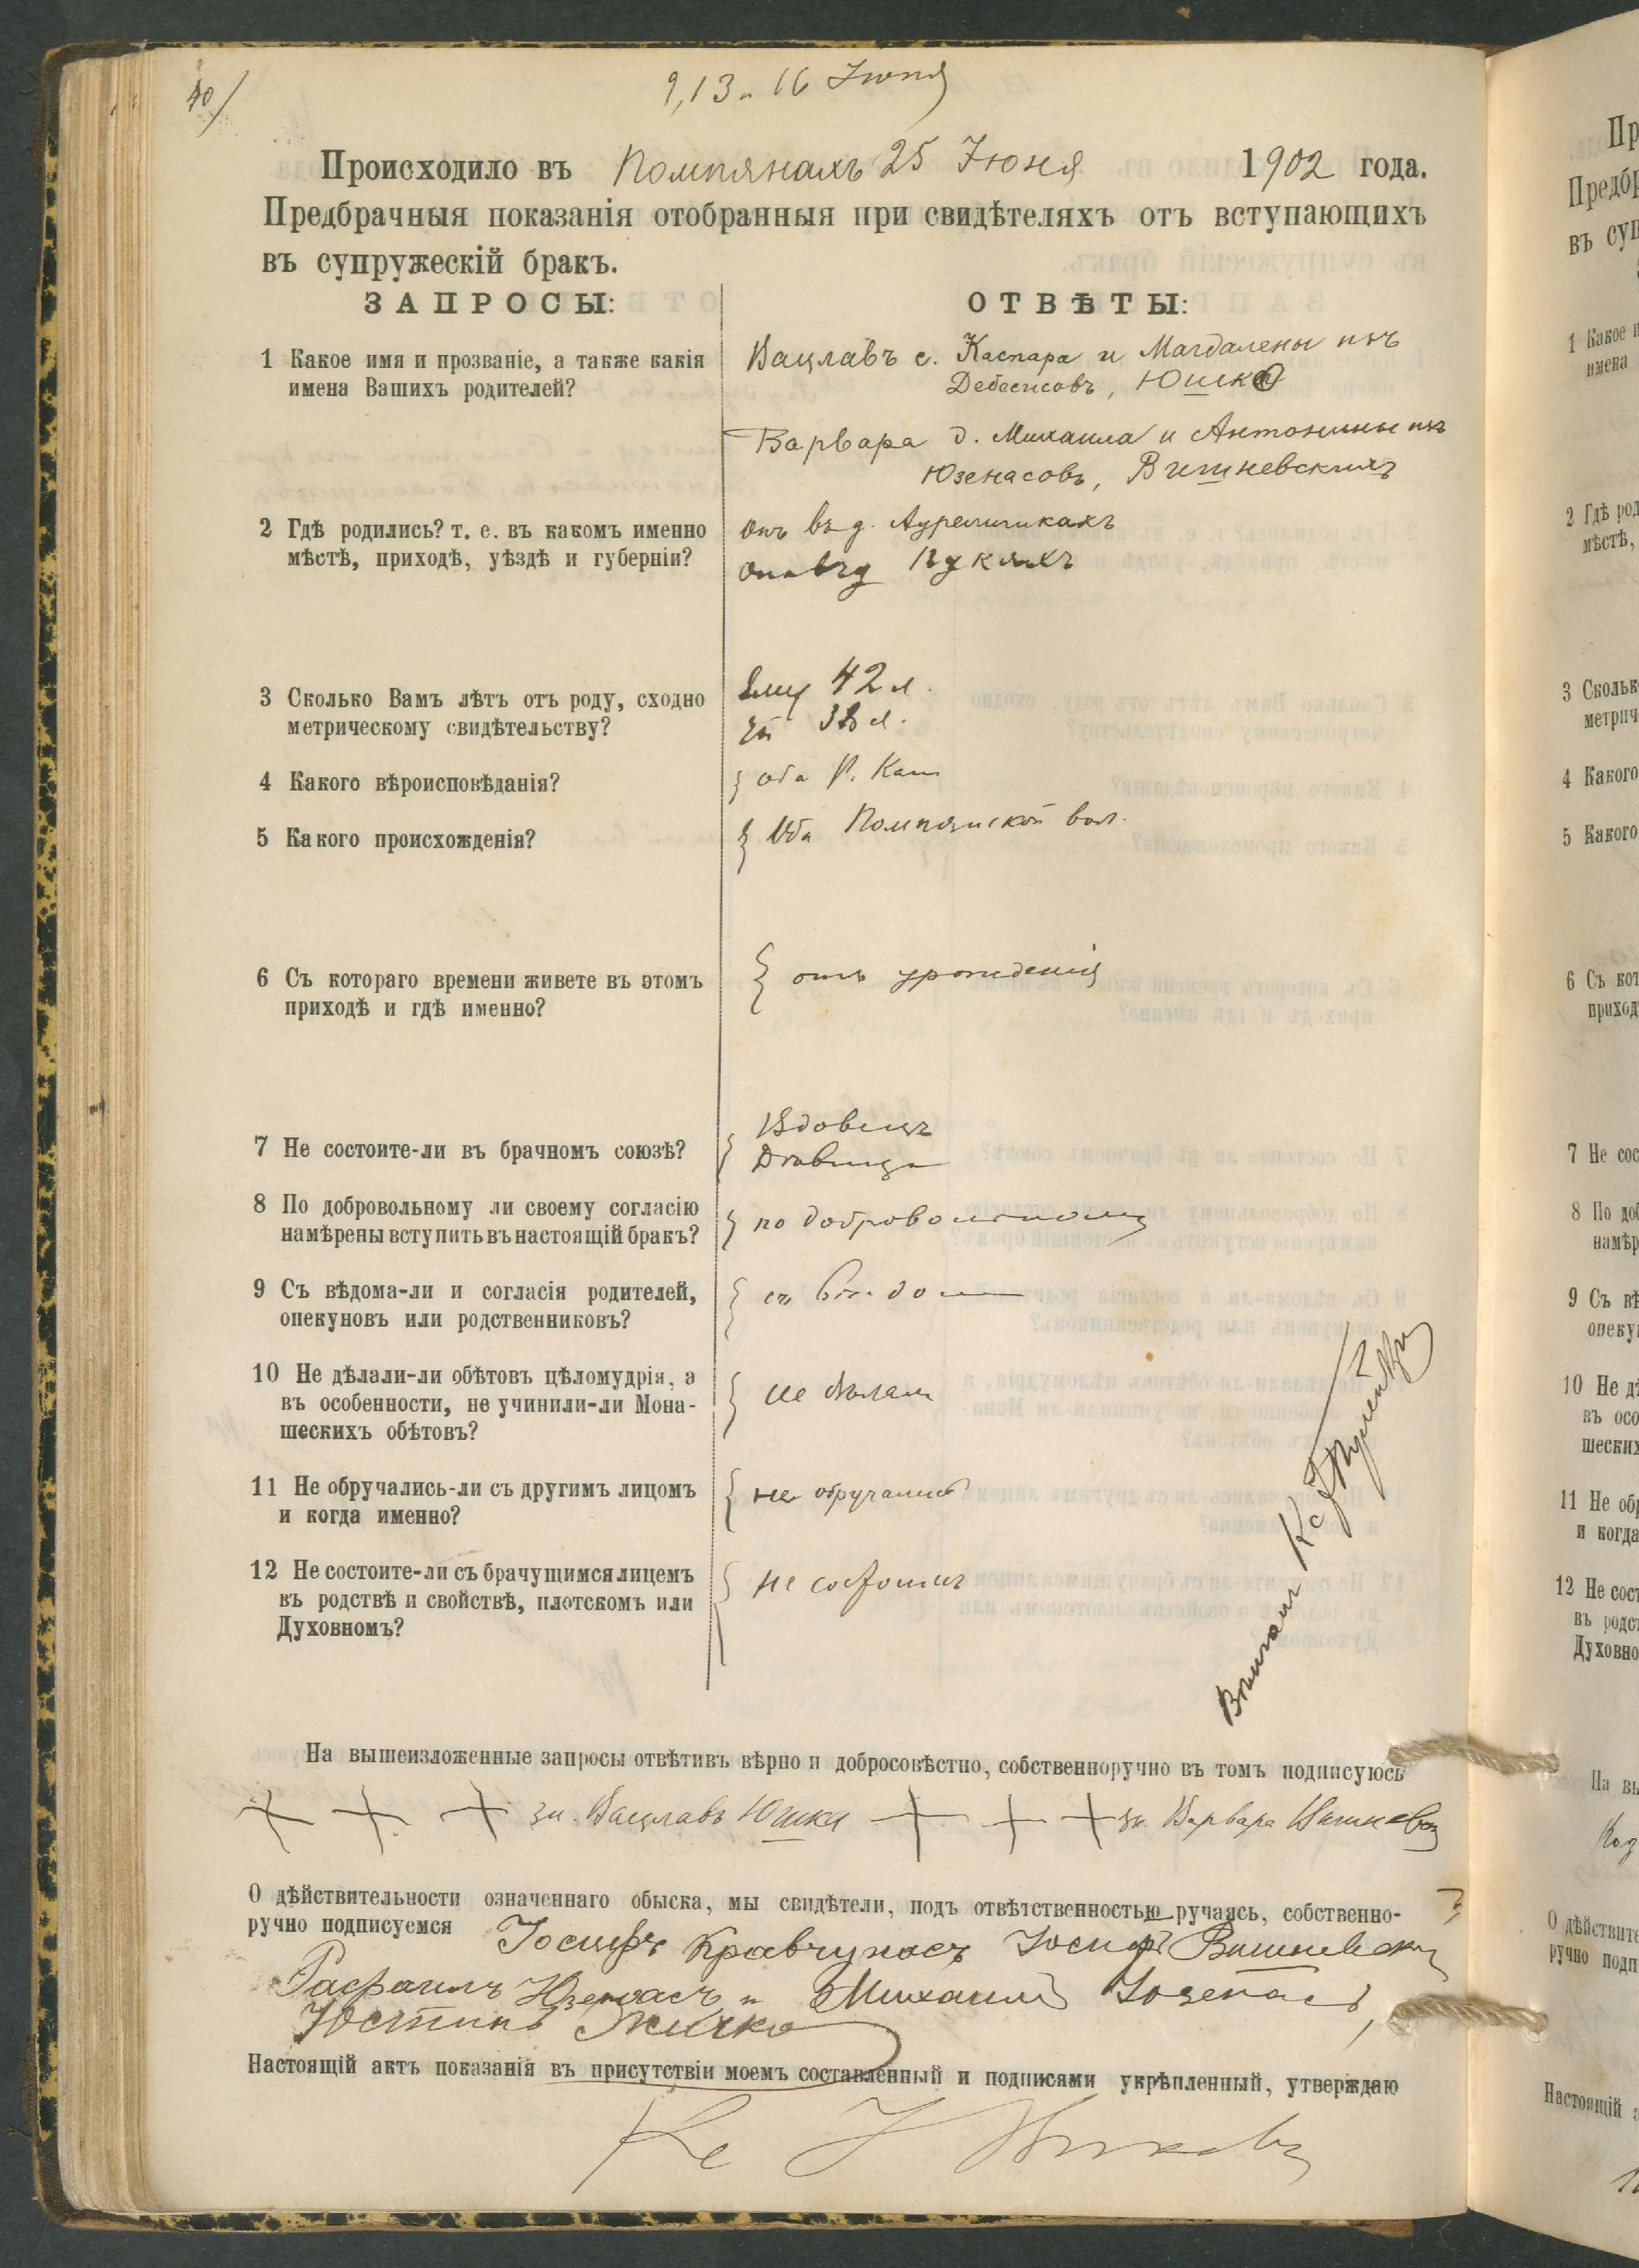 40/
9, 13 и 16 Іюня
Происходило въ Помпянахъ 25 Іюня 1902 года.
Предбрачныя показанія отобранныя при свидѣтеляхъ отъ вступающихъ
въ супружескій бракъ.
ЗАПРОСЫ:
ОТВѢТЫ:
1 Какое имя и прозваніе, а также какія
имена Вашихъ родителей?
Вацлавъ с. Каспара и Магдалены изъ
Дебесисовъ, Юшко
Варвара д. Михаила и Антонины изъ
Юзенасовъ, Вишневскихъ
2 Гдѣ родились? т. е. въ какомъ именно
мѣстѣ, приходѣ, уѣздѣ и губерніи?
онъ въ д.
она въ д
3 Сколько Вамъ лѣтъ отъ роду, сходно
метрическому свидѣтельству?
Ему 42 л.
Ей 38 л.
4 Какого вѣроисповѣданія?
оба Р. Кат
5 Какого происхожденія?
Оба Помпянской вол.
6 Съ котораго времени живете въ этомъ
приходѣ и гдѣ именно?
отъ урожденія
7 Не состоите-ли въ брачномъ союзѣ?
Вдовецъ
Дѣвица
8 По добровольному ли своему согласію
намѣрены вступить въ настоящій бракъ?
по добровольному
9 Съ вѣдома-ли и согласія родителей,
опекуновъ или родственниковъ?
съ вѣдома
10 Не дѣлали-ли обѣтовъ цѣломудрія, а
въ особенности, не учинили-ли Мона-
шескихъ обѣтовъ?
не дѣлали
11 Не обручались-ли съ другимъ лицомъ
и когда именно?
не обручались
12 Не состоите-ли съ брачущимся лицемъ
въ родствѣ и свойствѣ, плотскомъ или
Духовномъ?
не состоимъ
На вышеизложенные запросы отвѣтивъ вѣрно и добросовѣстно, собственноручно въ томъ подписуюсь
+ + + зн. Вацлавъ Юшки + + + зн. Варвара
О дѣйствительности означеннаго обыска, мы свидѣтели, подъ отвѣтственностью ручаясь, собственно-
ручно подписуемся Іосифъ Кравчунасъ Іосифъ Вишневски
Рафаилъ Юзенасъ и Михаилъ Юзенасъ,
Юстинъ
Настоящій актъ показанія въ присутствіи моемъ составленный и подписями укрѣпленный, утверждаю